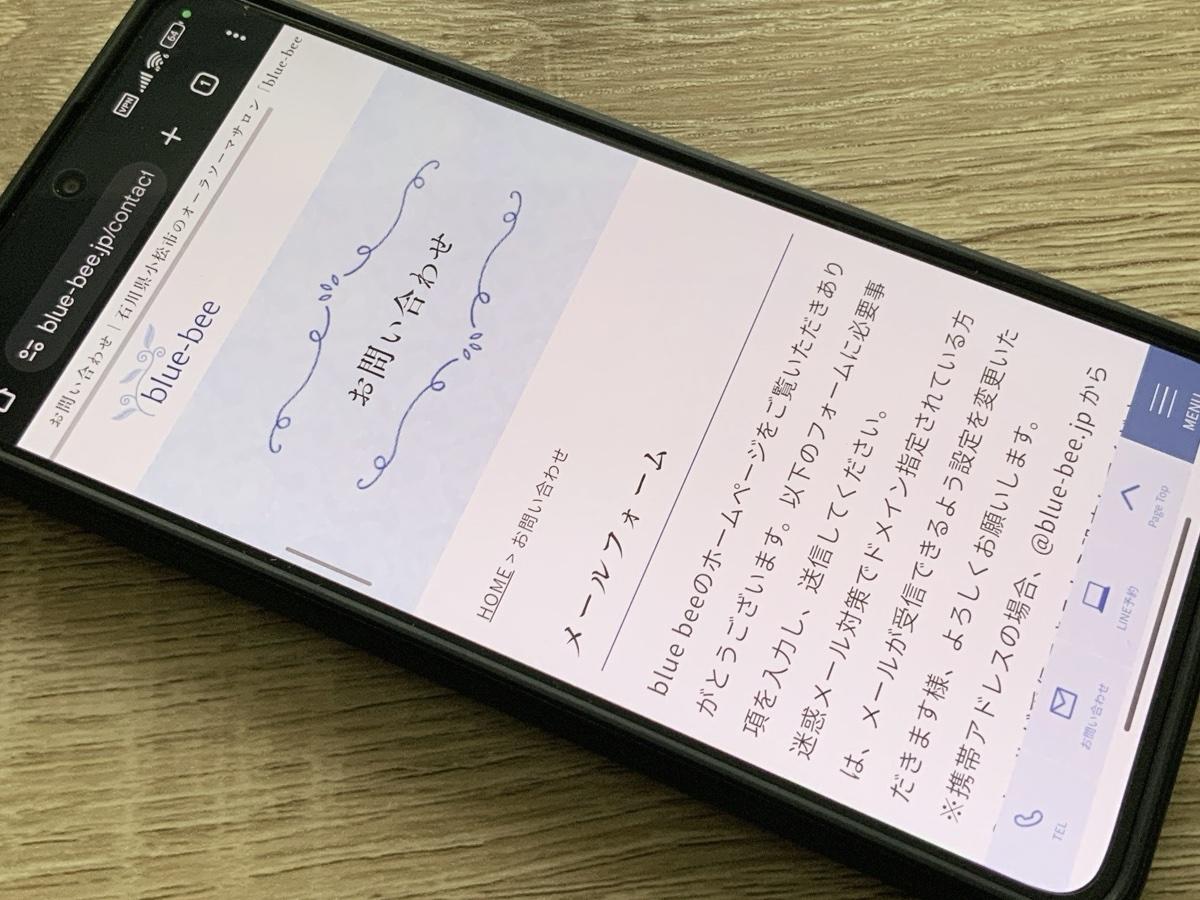 VPN 64
blue-bee.jp/contact
1
お問い合わせ | 石川県小松市のオーラソーマサロン「blue-bee
blue-bee
お問い合わせ
HOME > お問い合わせ
メールフォーム
blue beeのホームページをご覧いただきあり
がとうございます。以下のフォームに必要事
項を入力し、送信してください。
迷惑メール対策でドメイン指定されている方
は、メールが受信できるよう設定を変更いた
だきます様、よろしくお願いします。
※携帯アドレスの場合、@blue-bee.jp から
TEL
お問い合わせ
LINE予約
Page Top
MENU